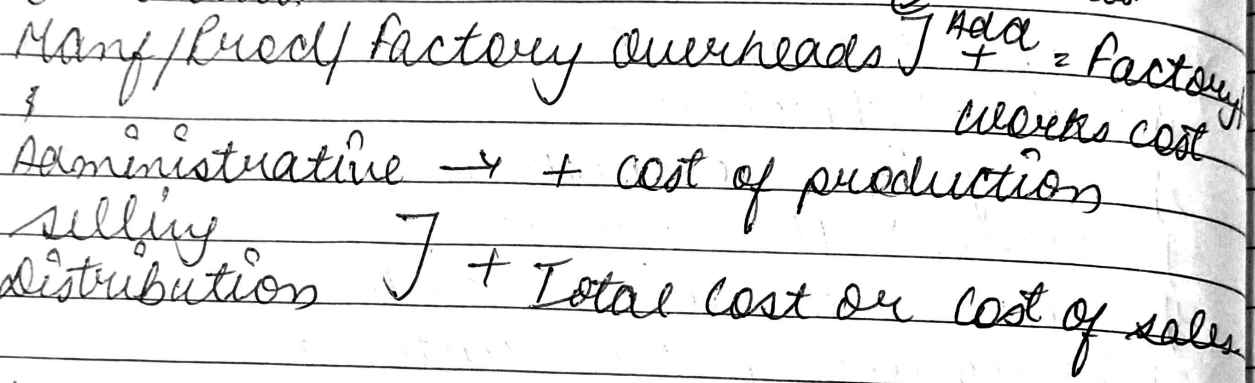 Manf/Prod/ factory overheads ] Add + = factory
& works cost
Administrative → + cost of production
selling
Distribution ] + Total cost or cost of sales